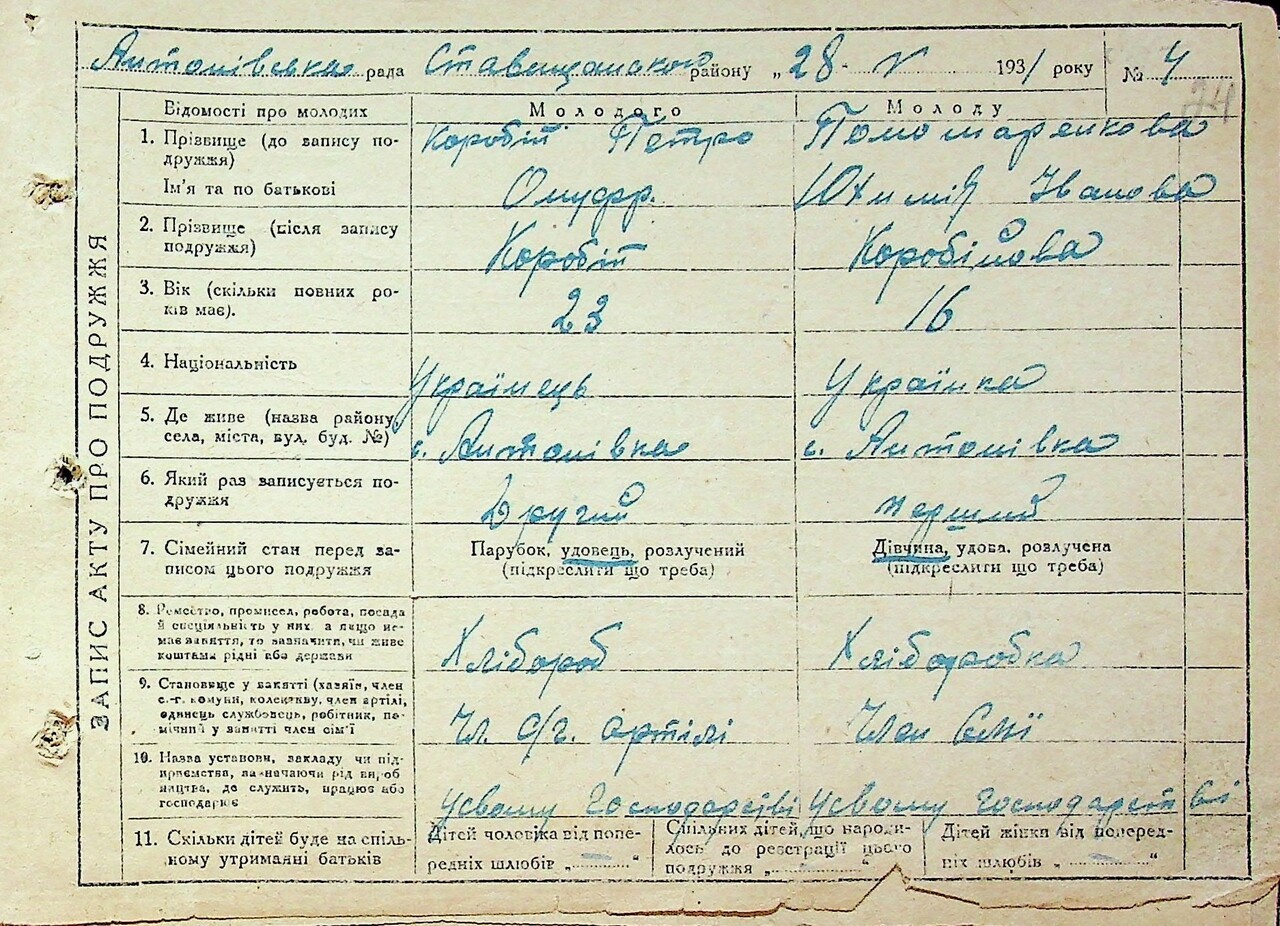 Антонівська рада Ставищанского району „28 - V 1931 року № 4
24
ЗАПИС АКТУ ПРО ПОДРУЖЖЯ
Відомості про молодих
Молодого
Молоду
1. Прізвище (до запису по-
дружжя)
Ім'я та по батькові
Коробій Петро
Онуфр.
Пономаренкова
Юхимія Іванова
2. Прізвище (після запису
подружжя)
Коробій
Коробійова
3. Вік (скільки повних ро-
ків має).
23
16
4. Національність
Українець
Українка
5. Де живе (назва району,
села, міста, вул. буд. №)
с. Антонівка
с. Антонівка
6. Який раз записується по-
дружжя
Другий
перший
7. Сімейний стан перед за-
писом цього подружжя
Парубок, удовець, розлучений
(підкреслити що треба)
Дівчина, удова, розлучена
(підкреслити що треба)
8. Ремество, промисел, робота, посада
й спеціяльність у них, а якщо не-
має заняття, то зазначити, чи живе
коштами рідні або держави
Хлібороб
Хлібодробка
9. Становище у занятті (хазяїн, член
с.-г. комуни, колективу, член артілі,
одинець службовець, робітник, по-
мічний у занятті член сім'ї
Чл. с/г. артілі
Член Сімї
10. Назва установи, закладу чи під-
приємства, зазначаючи рід вироб
ництва, де служить, працює або
господарює
Усвому Господарстві
Усвому Господарстві
11. Скільки дітей буде на спіль-
ному утриманні батьків
Дітей чоловіка від попе-
редніх шлюбів „ — “
Спільних дітей, що народи-
лось до реєстрації цього
подружжя „ - “
Дітей жінки від поперед-
ніх шлюбів „ — “